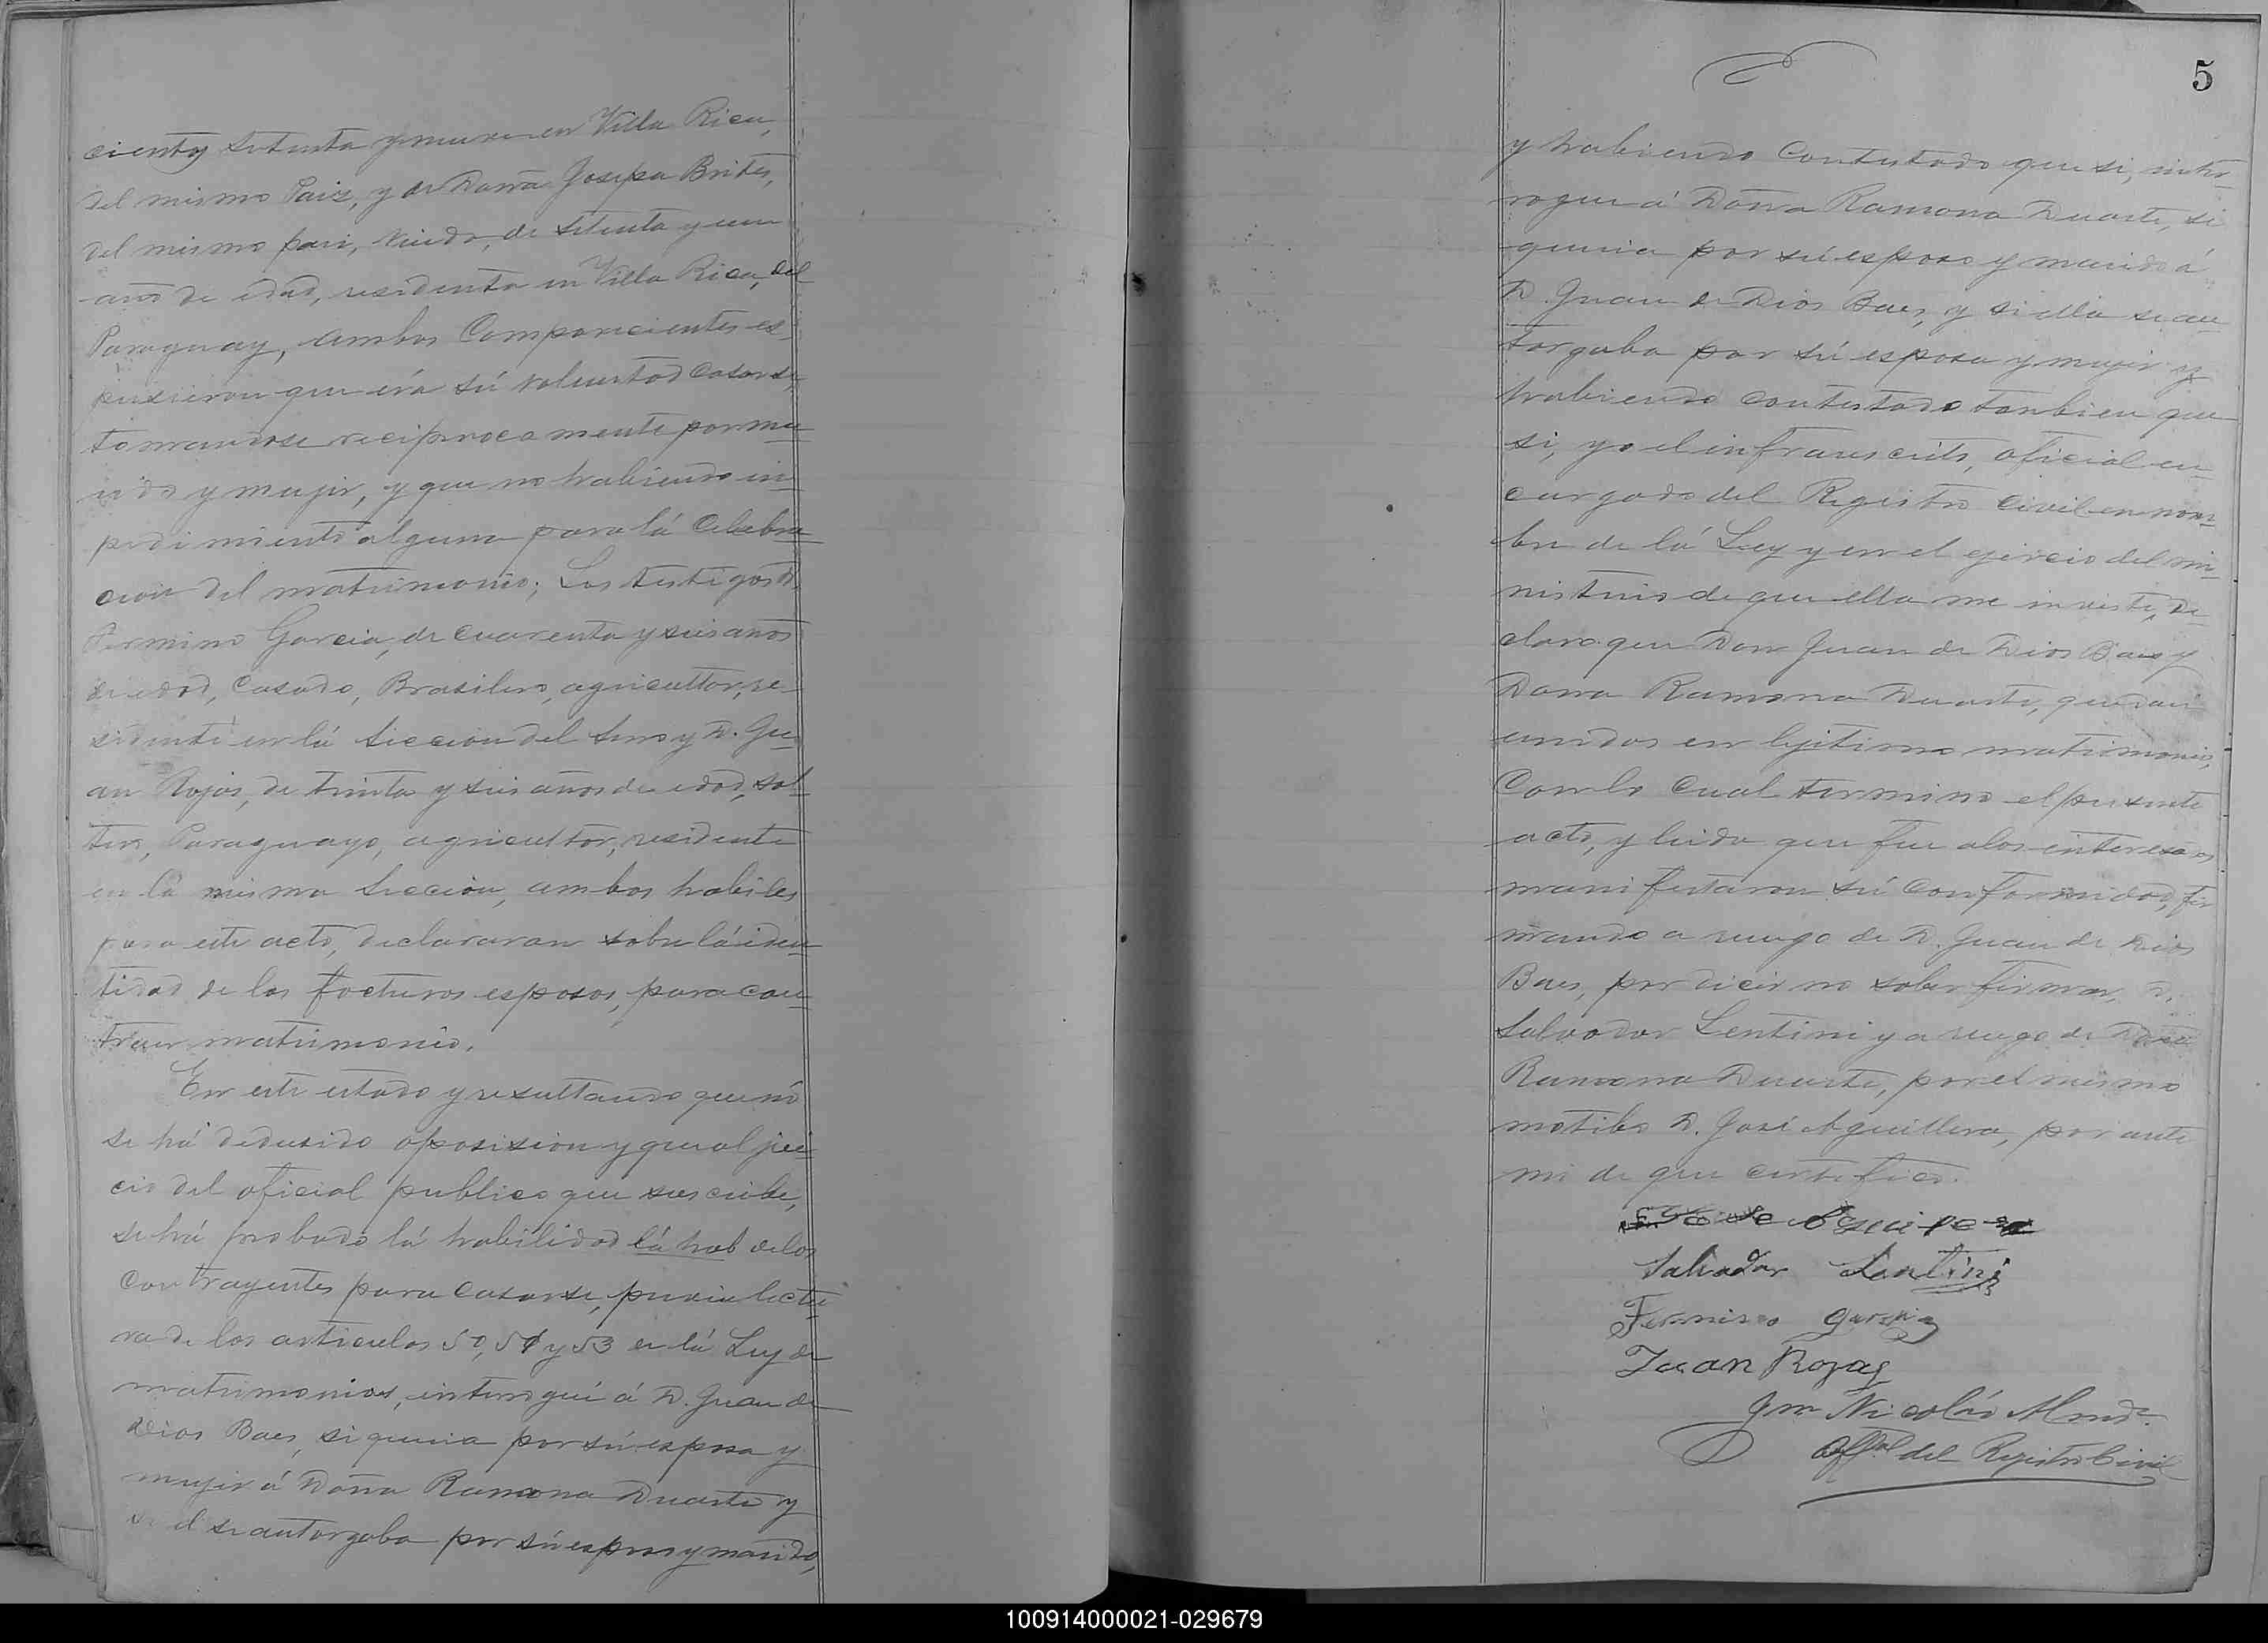 cientos setenta y nueve en Villa Rica,
del mismo Pais, y de Danña Josepa Brites,
del mismo pais, viuda, de setenta y un
año de edad, residenta en Villa Rica, del
Paraguay, ambos Comparecientes es-
pusieron que éra sú voluntad casarse,
tomandose reciprocamente por ma-
rido y mujer, y que no habiendo in-
pedimiento alguno para lá Celebra-
cion del matrimonio; Los testigos D.
Fermino Garcia, de cuarenta y seis años
de edad, Casado, Brasilero, agricultor, re-
sidente en lá Seccion del y D. Ju-
an Rojas, de trinta y seis años de edad, sol-
tero, Paraguayo, agricultor, residente
en lá misma Seccion, ambos habiles
para este acto, declararan sobre lá iden-
tidad de los focturos esposos, para con-
traer matrimonio.
En este estado y resultando que nó
se há dedusido oposision y que al jui-
cio del oficial publico que suscribe,
se há probado lá habilidad lá hab de los
Contrayentes para Casarse, previa lectu-
ra de los articulos 50, 51 y 53 de lá Ley de
matrimonios, interogué á D. Juan de
Dios Baes, si queria por sú esposa y
mujer á Doña Ramona Duarte y
si el se autorgaba por sú esposo y marido,
5
y habiendo Contestado que si, inter-
rogue á Doña Ramona Duarte, si
queria por sú esposo y marido á
D. Juan de Dios Baes, y si ella se au-
torgaba por sú esposa y mujer y
habiendo contestado tanbien que
si, yo el infranscrito, oficial en-
cargado del Registro Civil en nom-
bre de lá Ley y en el ejercio del mi-
nisterio de que ella me inviste, de-
claro que Don Juan de Dios Baes y
Dona Ramona Duarte, quedan
unidos en lejitimo matrimonio,
Con lo Cual termino el presente
acto, y leido que fue a los interesados
manifestaron sú Conformidad, fir
mando a ruego de D. Juan de Dios
Baes, por dicir no saber firmar, D.
Salvador Lentini y a ruego de Dona
Ramona Duarte, por el mismo
motibo D. José Aguillera, por ante
mi de que certifico.
Salvador Lentini
Fermino Garsia
Juan Rojas
Jm Nicolás Almd.
Offal del Registro Civil
100914000021-029679